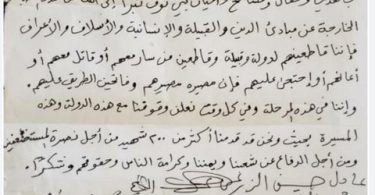 الخارجة عن مبادئ الدين والقبيلة والإنسانية والأسلاف والأعراف
فإننا مقاطعينهم لدولة وقبيلة وقاطعين من سار معهم أو قاتل معهم أو
أعانهم أو احتجى عليهم فإن مصيره مصيرهم وفاتحين الطريق عليهم.
وإننا في هذه المرحلة وفي كل وقت نعلن وقوفنا مع هذه الدولة وهذه
المسيرة بحيث ونحن قد قدمنا أكثر من ٢٠٠ شهيد من أجل نصرة المستضعفين
ومن أجل الدفاع عن شعبنا ويمننا وكرامة الناس وحقوقهم وشكراً.
عادل حسين